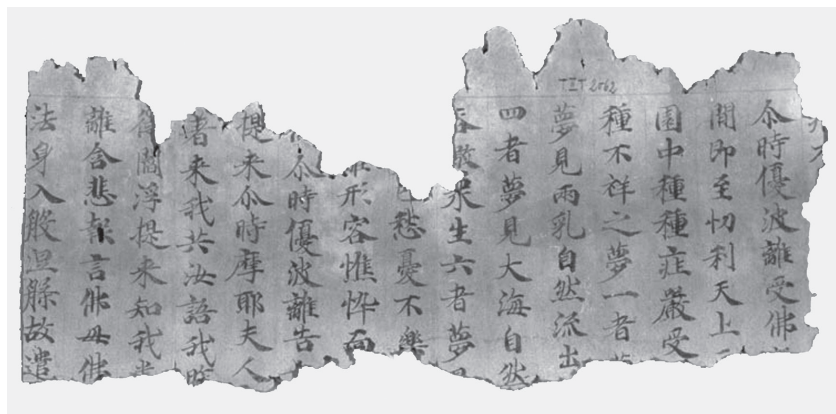 TIIT 2062
尒時優波離受佛
間即至忉利天上
園中種種莊嚴受
種不祥之夢一者
夢見兩乳自然流出
四者夢見大海自然
求生六者夢
愁憂不樂
形容憔悴而
尒時優波離告
提来尒時摩耶夫人
者来我共汝語我昨
閻浮提来知我
離含悲報言佛母佛
法身入般涅槃故遣